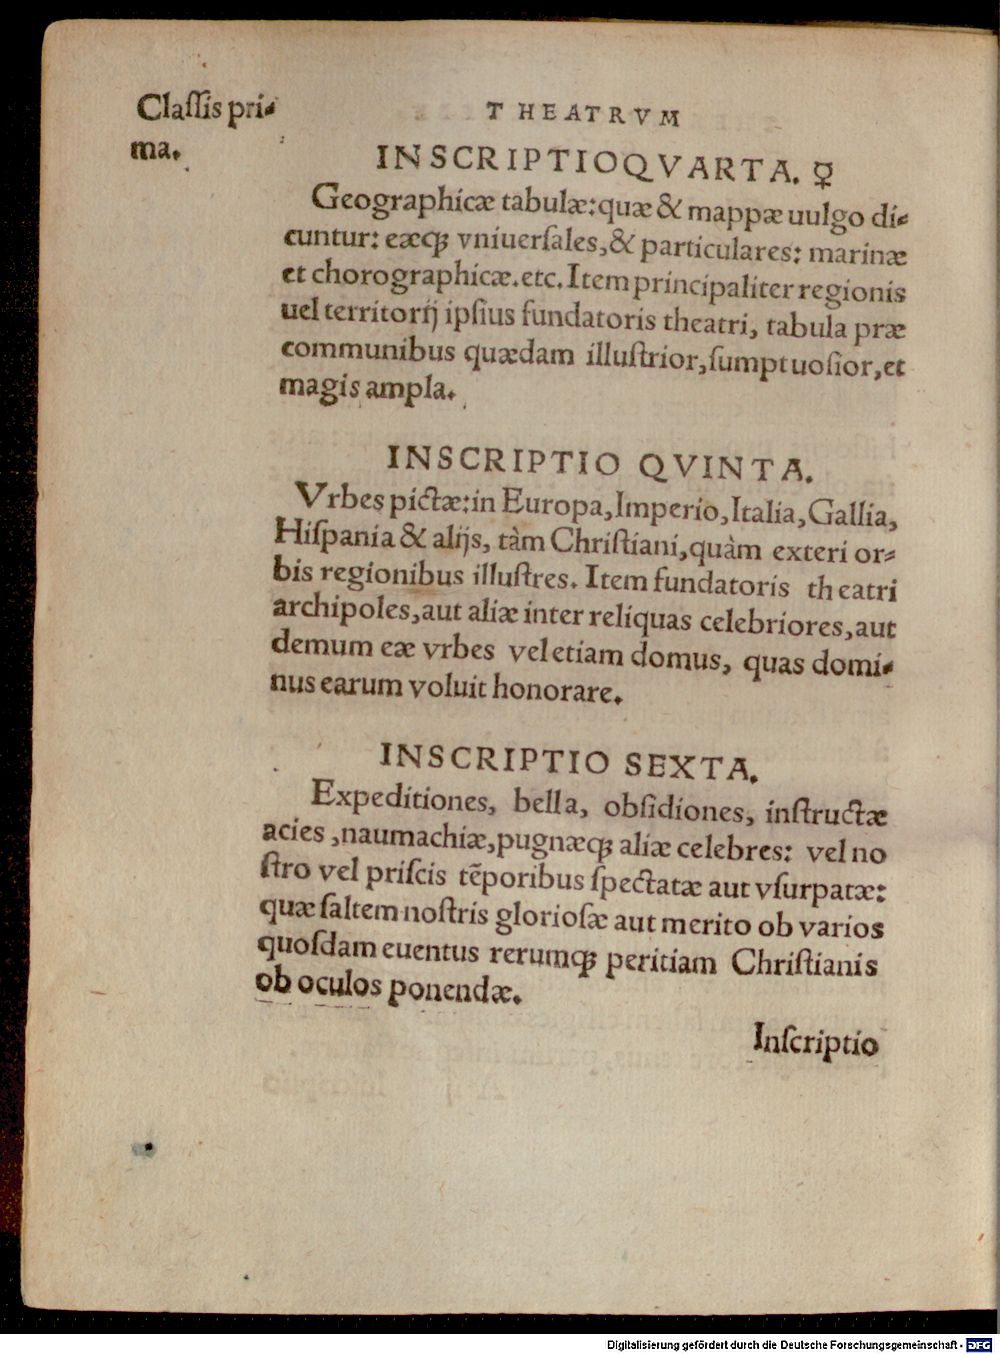 Claſſis pri⸗
ma.
THEATRVM
INSCRIPTIO QVARTA. ♀
Geographicæ tabulæ: quæ & mappæ uulgo di⸗
cuntur: eæq́; vniuerſales, & particulares: marinæ
et chorographicæ. etc. Item principaliter regionis
uel territorij ipſius fundatoris theatri, tabula præ
communibus quædam illuſtrior, ſumptuoſior, et
magis ampla.
INSCRIPTIO QVINTA.
Vrbes pictæ: in Europa, Imperio, Italia, Gallia,
Hiſpania & alijs, tàm Chriſtiani, quàm exteri or⸗
bis regionibus illuſtres. Item fundatoris theatri
archipoles, aut aliæ inter reliquas celebriores, aut
demum eæ vrbes vel etiam domus, quas domi⸗
nus earum voluit honorare.
INSCRIPTIO SEXTA.
Expeditiones, bella, obſidiones, inſtructæ
acies, naumachiæ, pugnæq́; aliæ celebres: vel no
ſtro vel priſcis tẽporibus ſpectatæ aut vſurpatæ:
quæ ſaltem noſtris glorioſæ aut merito ob varios
quoſdam euentus rerumq́; peritiam Chriſtianis
ob oculos ponendæ.
Inſcriptio
Digitalisierung gefördert durch die Deutsche Forschungsgemeinschaft - DFG